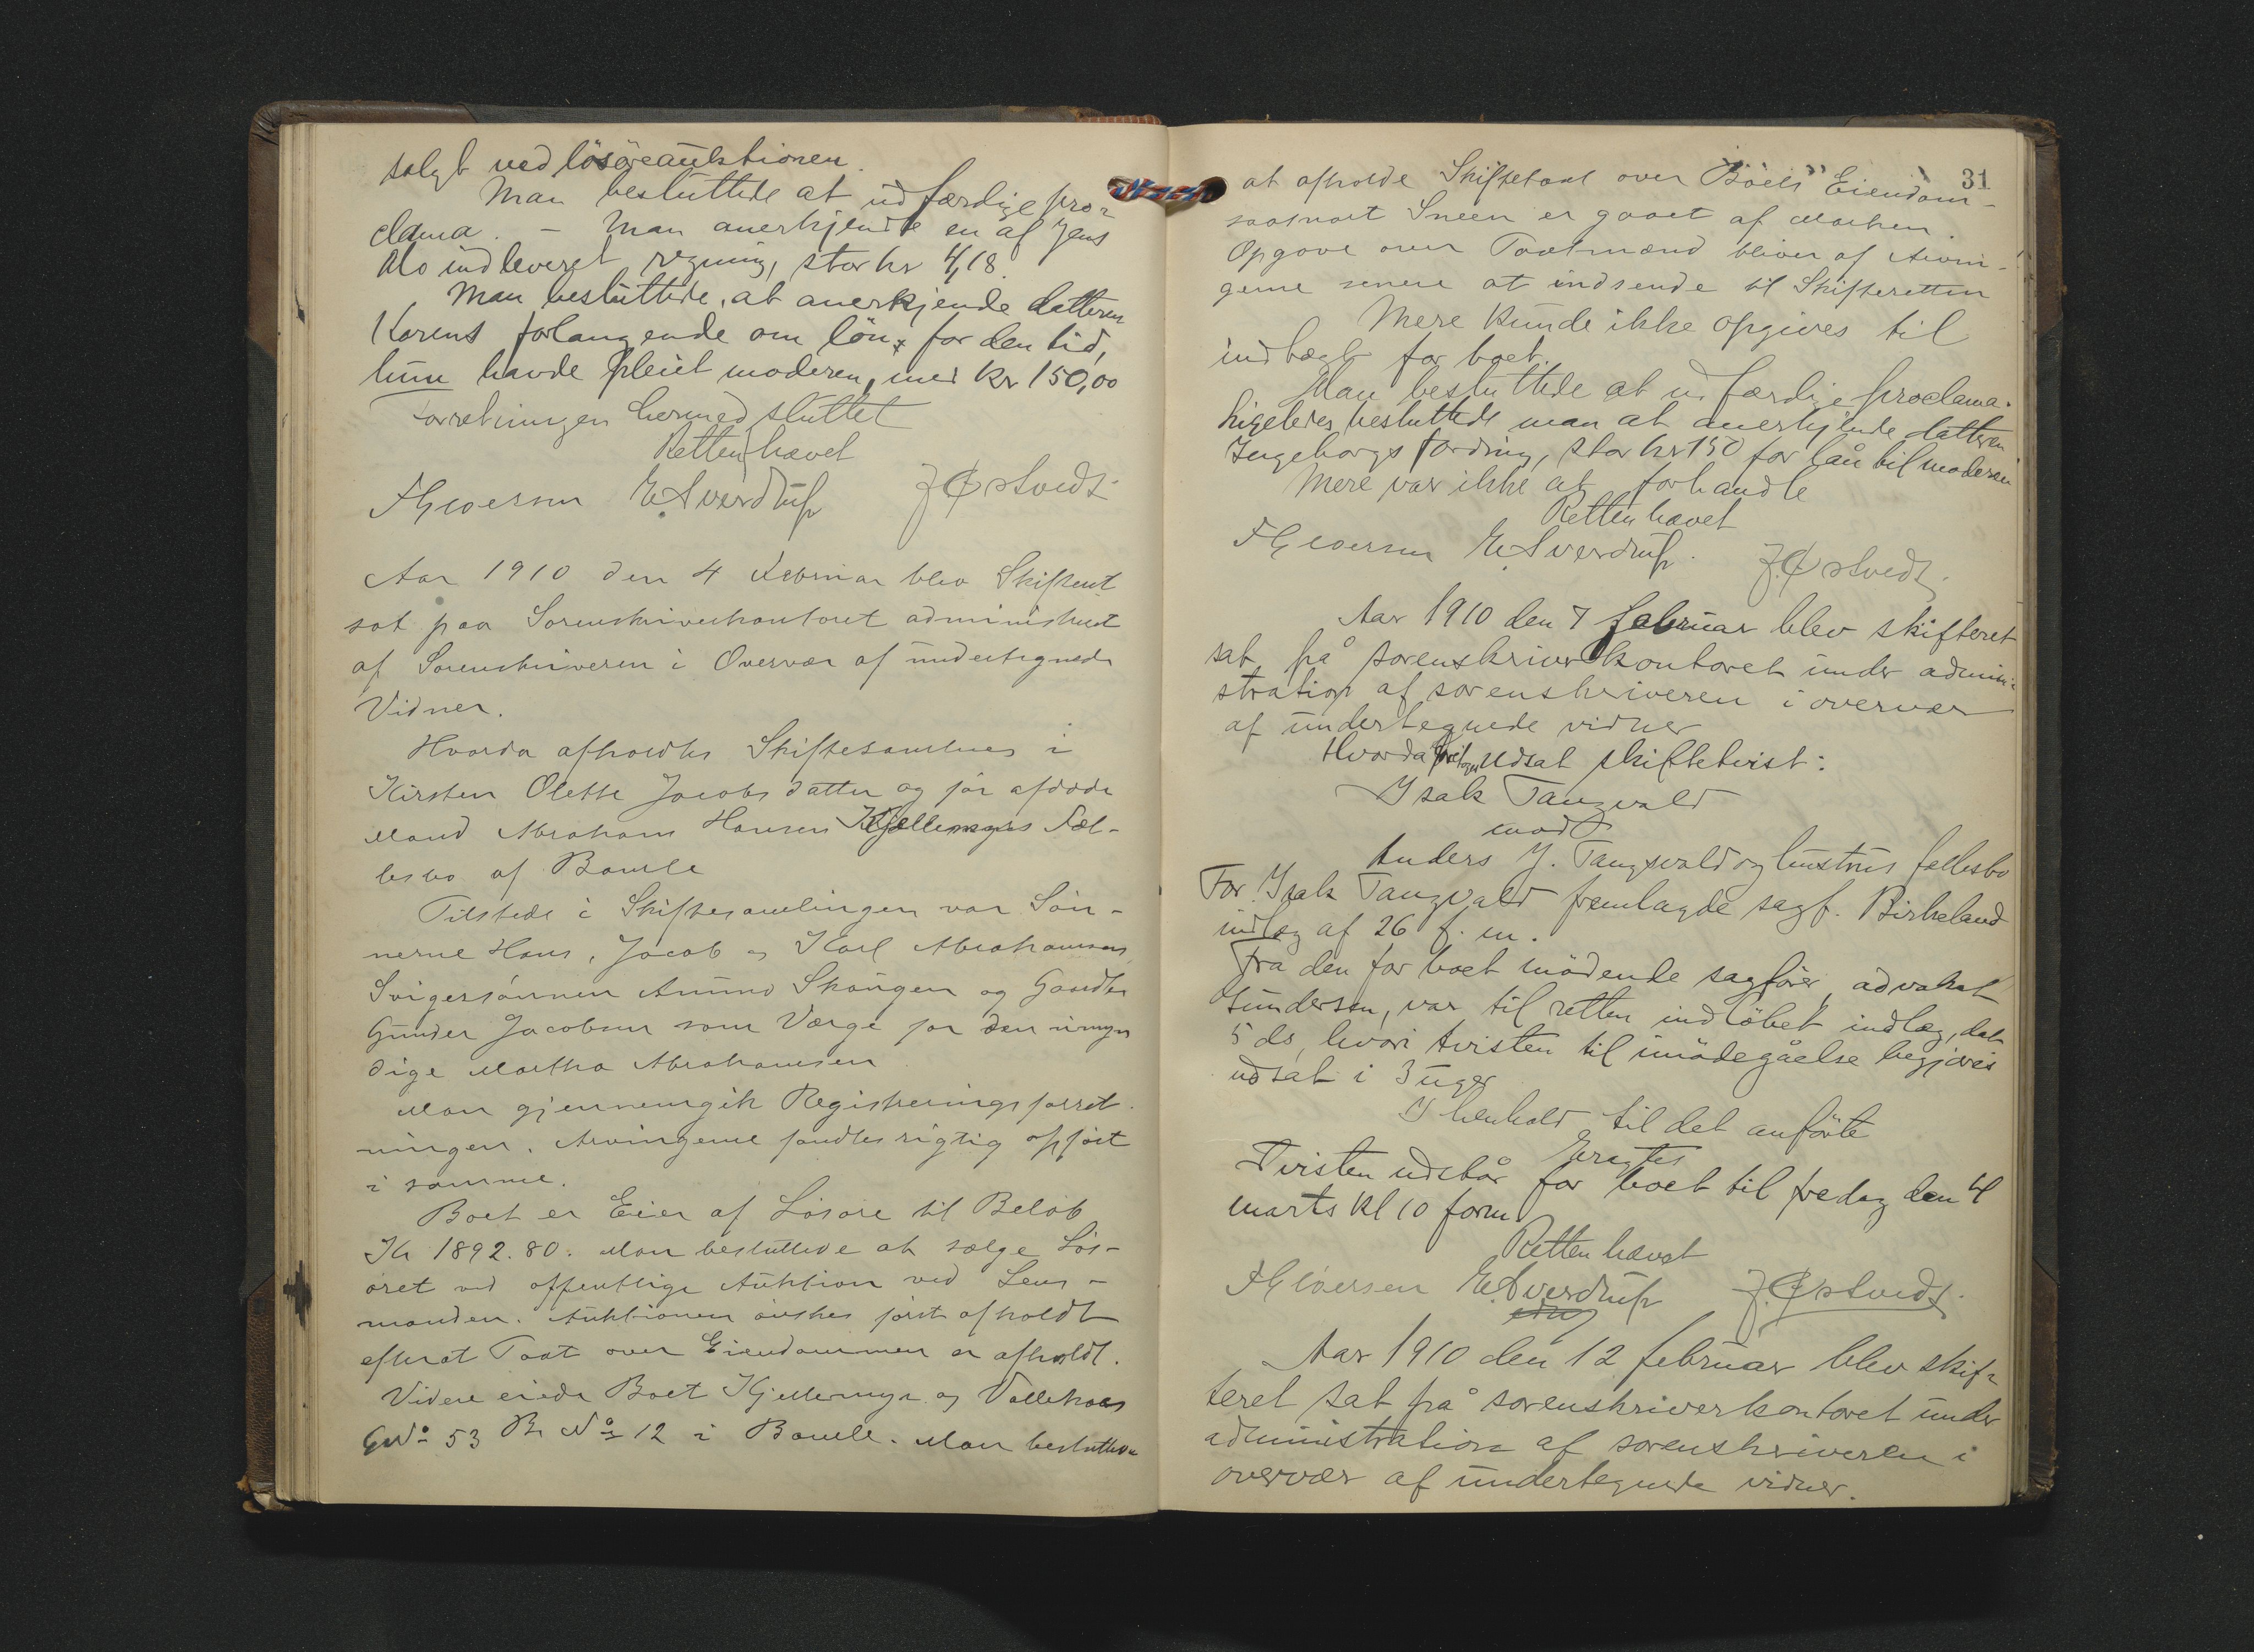 solgt ved lösöreauktionen.
Man besluttede at udfærdige pro-
clama. – Man anerkjendte en af Jens
Alo indleveret regning, stor kr 4,18.
Man besluttede at anerkjende datteren
Karens forlangende om lön for den tid,
hun havde pleiet moderen, med kr 150,00
Forretningen hermed sluttet
Retten hævet
E. Sverdrup J Østvedt
Aar 1910 den 4 Februar blev Skifteret
sat paa Sorenskriverkontoret administreret
af Sorenskriveren i Overvær af undertegnede
Vidner.
Hvorda afholdtes Skiftesamling i
Kirsten Olette Jacobsdatter og før afdøde
Mand Abraham Hansen Kjellemyrs Fæl-
lesbo af Bamle
Tilstede i Skiftesamlingen var Søn-
nerne Hans, Jacob og Karl Abrahamsen
Svigersønnen Anund Skougen og Gaardbr
Gunder Jacobsen som Værge for den umyn
dige Martha Abrahamsen
Man gjennemgik Registreringsforret-
ningen. Arvingerne fandtes rigtig opført
i samme.
Boet er Eier af Løsøre til Beløb
Kr 1892.80. Man besluttede at sælge Løs-
øret ved offentlige Auktion ved Lens-
manden. Auktionen ønskes først afholdt
efterat Taxt over Eiendommen er afholdt.
Videre eiede Boet Kjellemyr og Vallekaas
GNo 53 Br No 12 i Bamle. Man besluttede
31
at afholde Skiftetaxt over Boets Eiendom-
saasnart Sneen er gaaet af Marken.
Opgave over Taxtmænd bliver af Arvin-
gerne senere at indsende til Skifteretten
Mere kunde ikke opgives til
indtægt for boet.
Man besluttede at udfærdige proclama.
Ligeledes besluttede man at anerkjende datteren
Ingeborgs fordring, stor kr 150 for lån til moderen
Mere var ikke at forhandle
Retten hævet
E. Sverdrup. J. Østvedt
Aar 1910 den 7 februar blev skifteret
sat på sorenskriverkontoret under admini-
stration af sorenskriveren i overvær
af undertegnede vidner
Hvorda foretoges udsat skiftetvist:
Isak Tangvald
mod
Anders J. Tangvald og hustrus fællesbo
For Isak Tangvald fremlagde sagf. Birkeland
indlæg af 26 f. m.
Fra den for boet mödende sagförer, advokat
Gundersen, var til retten indlöbet indlæg, dat
5 ds, hvori tvisten til imödegåelse begjæres
udsat i 3 uger
I henhold til det anförte
eragtes
Tvisten udstår for boet til fredag den 4
marts kl 10 form
Retten hævet
E. Sverdrup J. Østvedt.
Aar 1910 den 12 februar blev skif-
teret sat på sorenskriverkontoret under
administration af sorenskriveren i
overvær af undertegnede vidner.